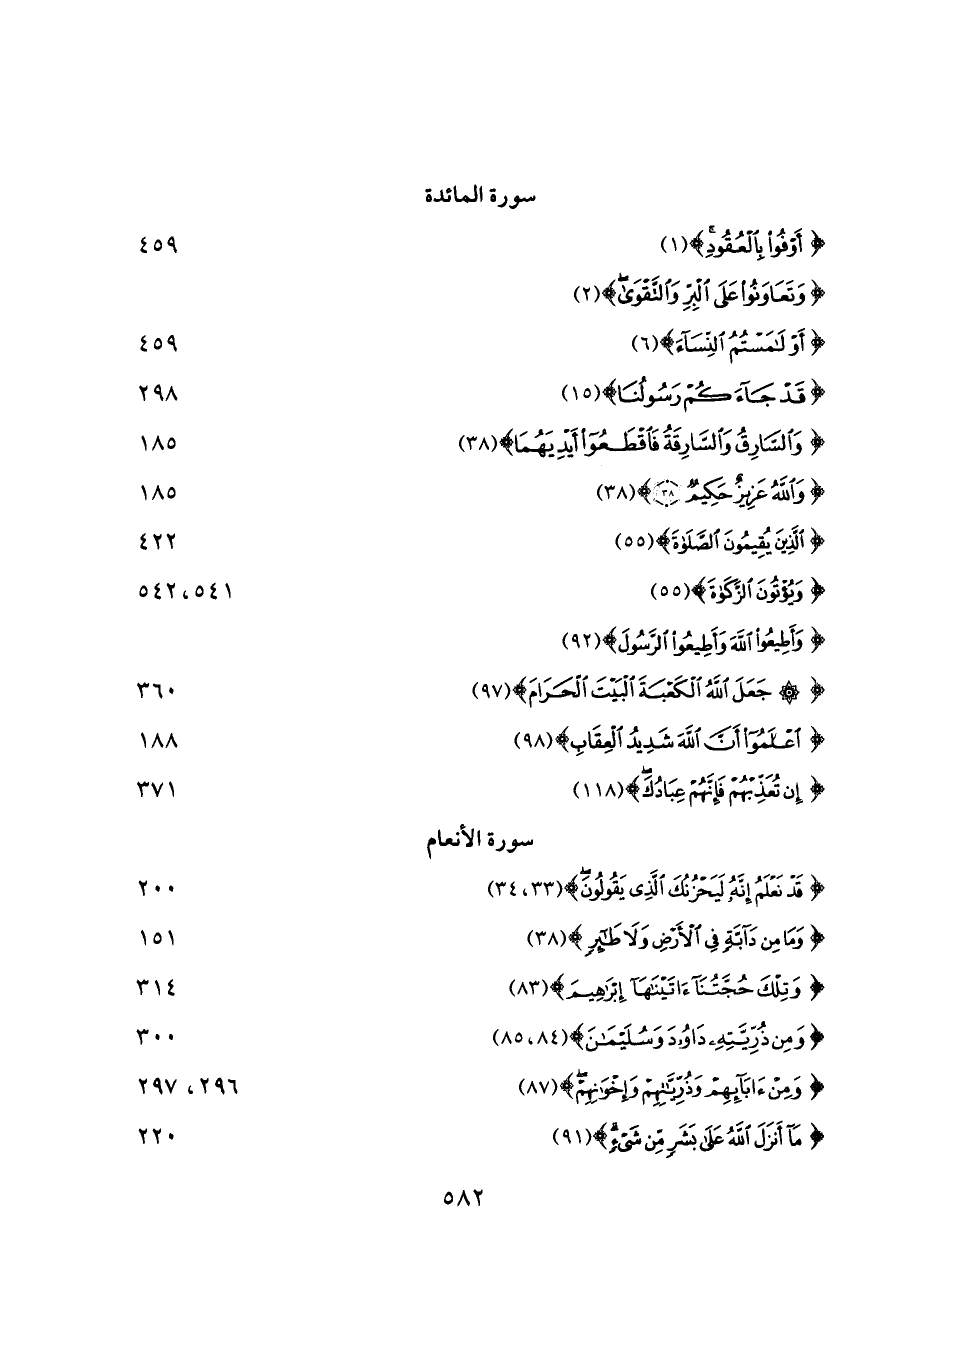 سورة المائدة
﴿ أَوْفُوا۟ بِٱلْعُقُودِ ۚ ﴾ (١) ٤٥٩
﴿ وَتَعَاوَنُوا۟ عَلَى ٱلْبِرِّ وَٱلتَّقْوَىٰ ۖ ﴾ (٢)
﴿ أَوْ لَـٰمَسْتُمُ ٱلنِّسَآءَ ﴾ (٦) ٤٥٩
﴿ قَدْ جَآءَكُمْ رَسُولُنَا ﴾ (١٥) ٢٩٨
﴿ وَٱلسَّارِقُ وَٱلسَّارِقَةُ فَٱقْطَعُوٓا۟ أَيْدِيَهُمَا ﴾ (٣٨) ١٨٥
﴿ وَٱللَّهُ عَزِيزٌ حَكِيمٌ ٣٨ ﴾ (٣٨) ١٨٥
﴿ ٱلَّذِينَ يُقِيمُونَ ٱلصَّلَوٰةَ ﴾ (٥٥) ٤٢٢
﴿ وَيُؤْتُونَ ٱلزَّكَوٰةَ ﴾ (٥٥) ٥٤١، ٥٤٢
﴿ وَأَطِيعُوا۟ ٱللَّهَ وَأَطِيعُوا۟ ٱلرَّسُولَ ﴾ (٩٢)
﴿ ۞ جَعَلَ ٱللَّهُ ٱلْكَعْبَةَ ٱلْبَيْتَ ٱلْحَرَامَ ﴾ (٩٧) ٣٦٠
﴿ ٱعْلَمُوٓا۟ أَنَّ ٱللَّهَ شَدِيدُ ٱلْعِقَابِ ﴾ (٩٨) ١٨٨
﴿ إِن تُعَذِّبْهُمْ فَإِنَّهُمْ عِبَادُكَ ۖ ﴾ (١١٨) ٣٧١
سورة الأنعام
﴿ قَدْ نَعْلَمُ إِنَّهُۥ لَيَحْزُنُكَ ٱلَّذِى يَقُولُونَ ۖ ﴾ (٣٣، ٣٤) ٢٠٠
﴿ وَمَا مِن دَآبَّةٍ فِى ٱلْأَرْضِ وَلَا طَـٰٓئِرٍ ﴾ (٣٨) ١٥١
﴿ وَتِلْكَ حُجَّتُنَآ ءَاتَيْنَـٰهَآ إِبْرَٰهِيمَ ﴾ (٨٣) ٣١٤
﴿ وَمِن ذُرِّيَّتِهِۦ دَاوُۥدَ وَسُلَيْمَـٰنَ ﴾ (٨٤، ٨٥) ٣٠٠
﴿ وَمِنْ ءَابَآئِهِمْ وَذُرِّيَّـٰتِهِمْ وَإِخْوَٰنِهِمْ ۖ ﴾ (٨٧) ٢٩٦، ٢٩٧
﴿ مَآ أَنزَلَ ٱللَّهُ عَلَىٰ بَشَرٍ مِّن شَىْءٍ ۗ ﴾ (٩١) ٢٢٠
٥٨٢